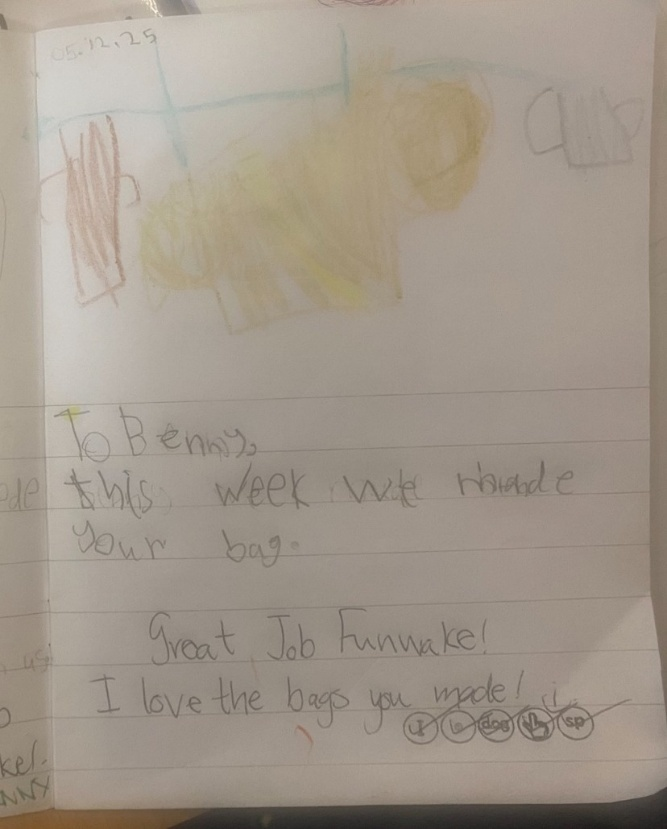 05.12.25
To Benny,
this week we made
your bag.
Great Job Funwake!
I love the bags you made!
dog sp